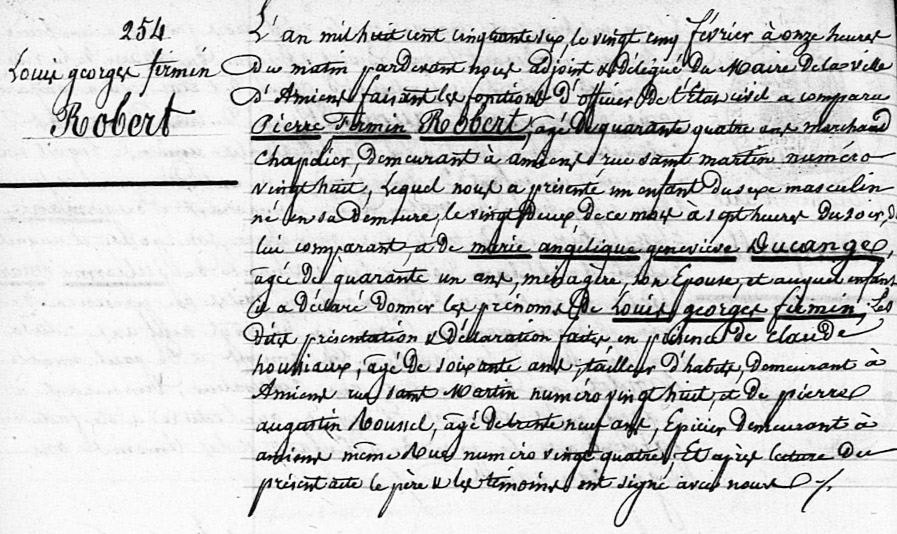 254.
Louis georges firmin
Robert
L'an mil huit cent cinquante six, le vingt cinq février à onze heures
du matin pardevant nous adjoint & délégué du Maire de la ville
d'Amiens faisant les fonctions d'officier de l'Etat civil a comparu
Pierre Firmin Robert, âgé de quarante quatre ans marchand
Chapelier, demeurant à amiens rue saint martin numéro
vingt huit, Lequel nous a présenté un enfant du sexe masculin
né en sa demeure, le vingt deux de ce mois à sept heures du soir, de
lui comparant, & de marie angélique geneviève Ducange,
âgée de quarante un ans, ménagère, son Epouse, et auquel enfant
il a déclaré donner les prénoms de Louis georges firmin. Les
dites présentation & déclaration faites en présence de claude
houssiaux, âgé de soixante ans, tailleur d'habits, demeurant à
Amiens rue saint Martin numéro vingt huit, et de pierre
augustin Roussel, âgé de trente neuf ans, Epicier demeurant à
amiens même Rue numéro vingt quatre, Et après lecture du
présent acte le père & les témoins ont signé avec nous